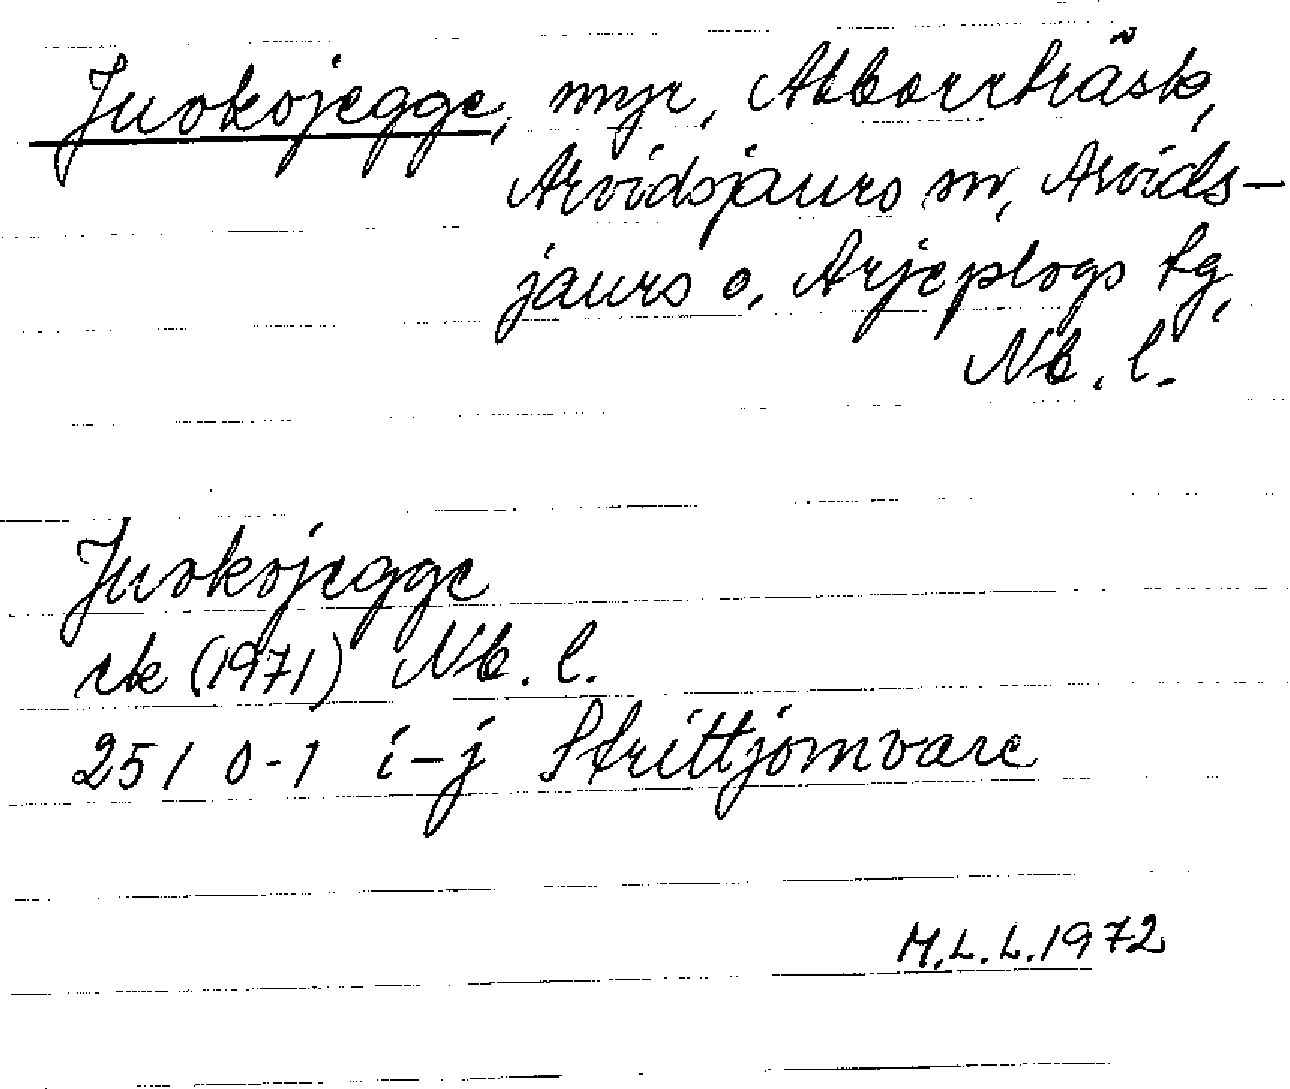 Juokojegge, myr, Abborrträsk,
Arvidsjaurs sn, Arvids-
jaurs o. Arjeplogs tg,
Nb. l.
Juokojegge
rk (1971) Nb. l.
251 0-1 i-j Strittjomvare
M.L.L.1972